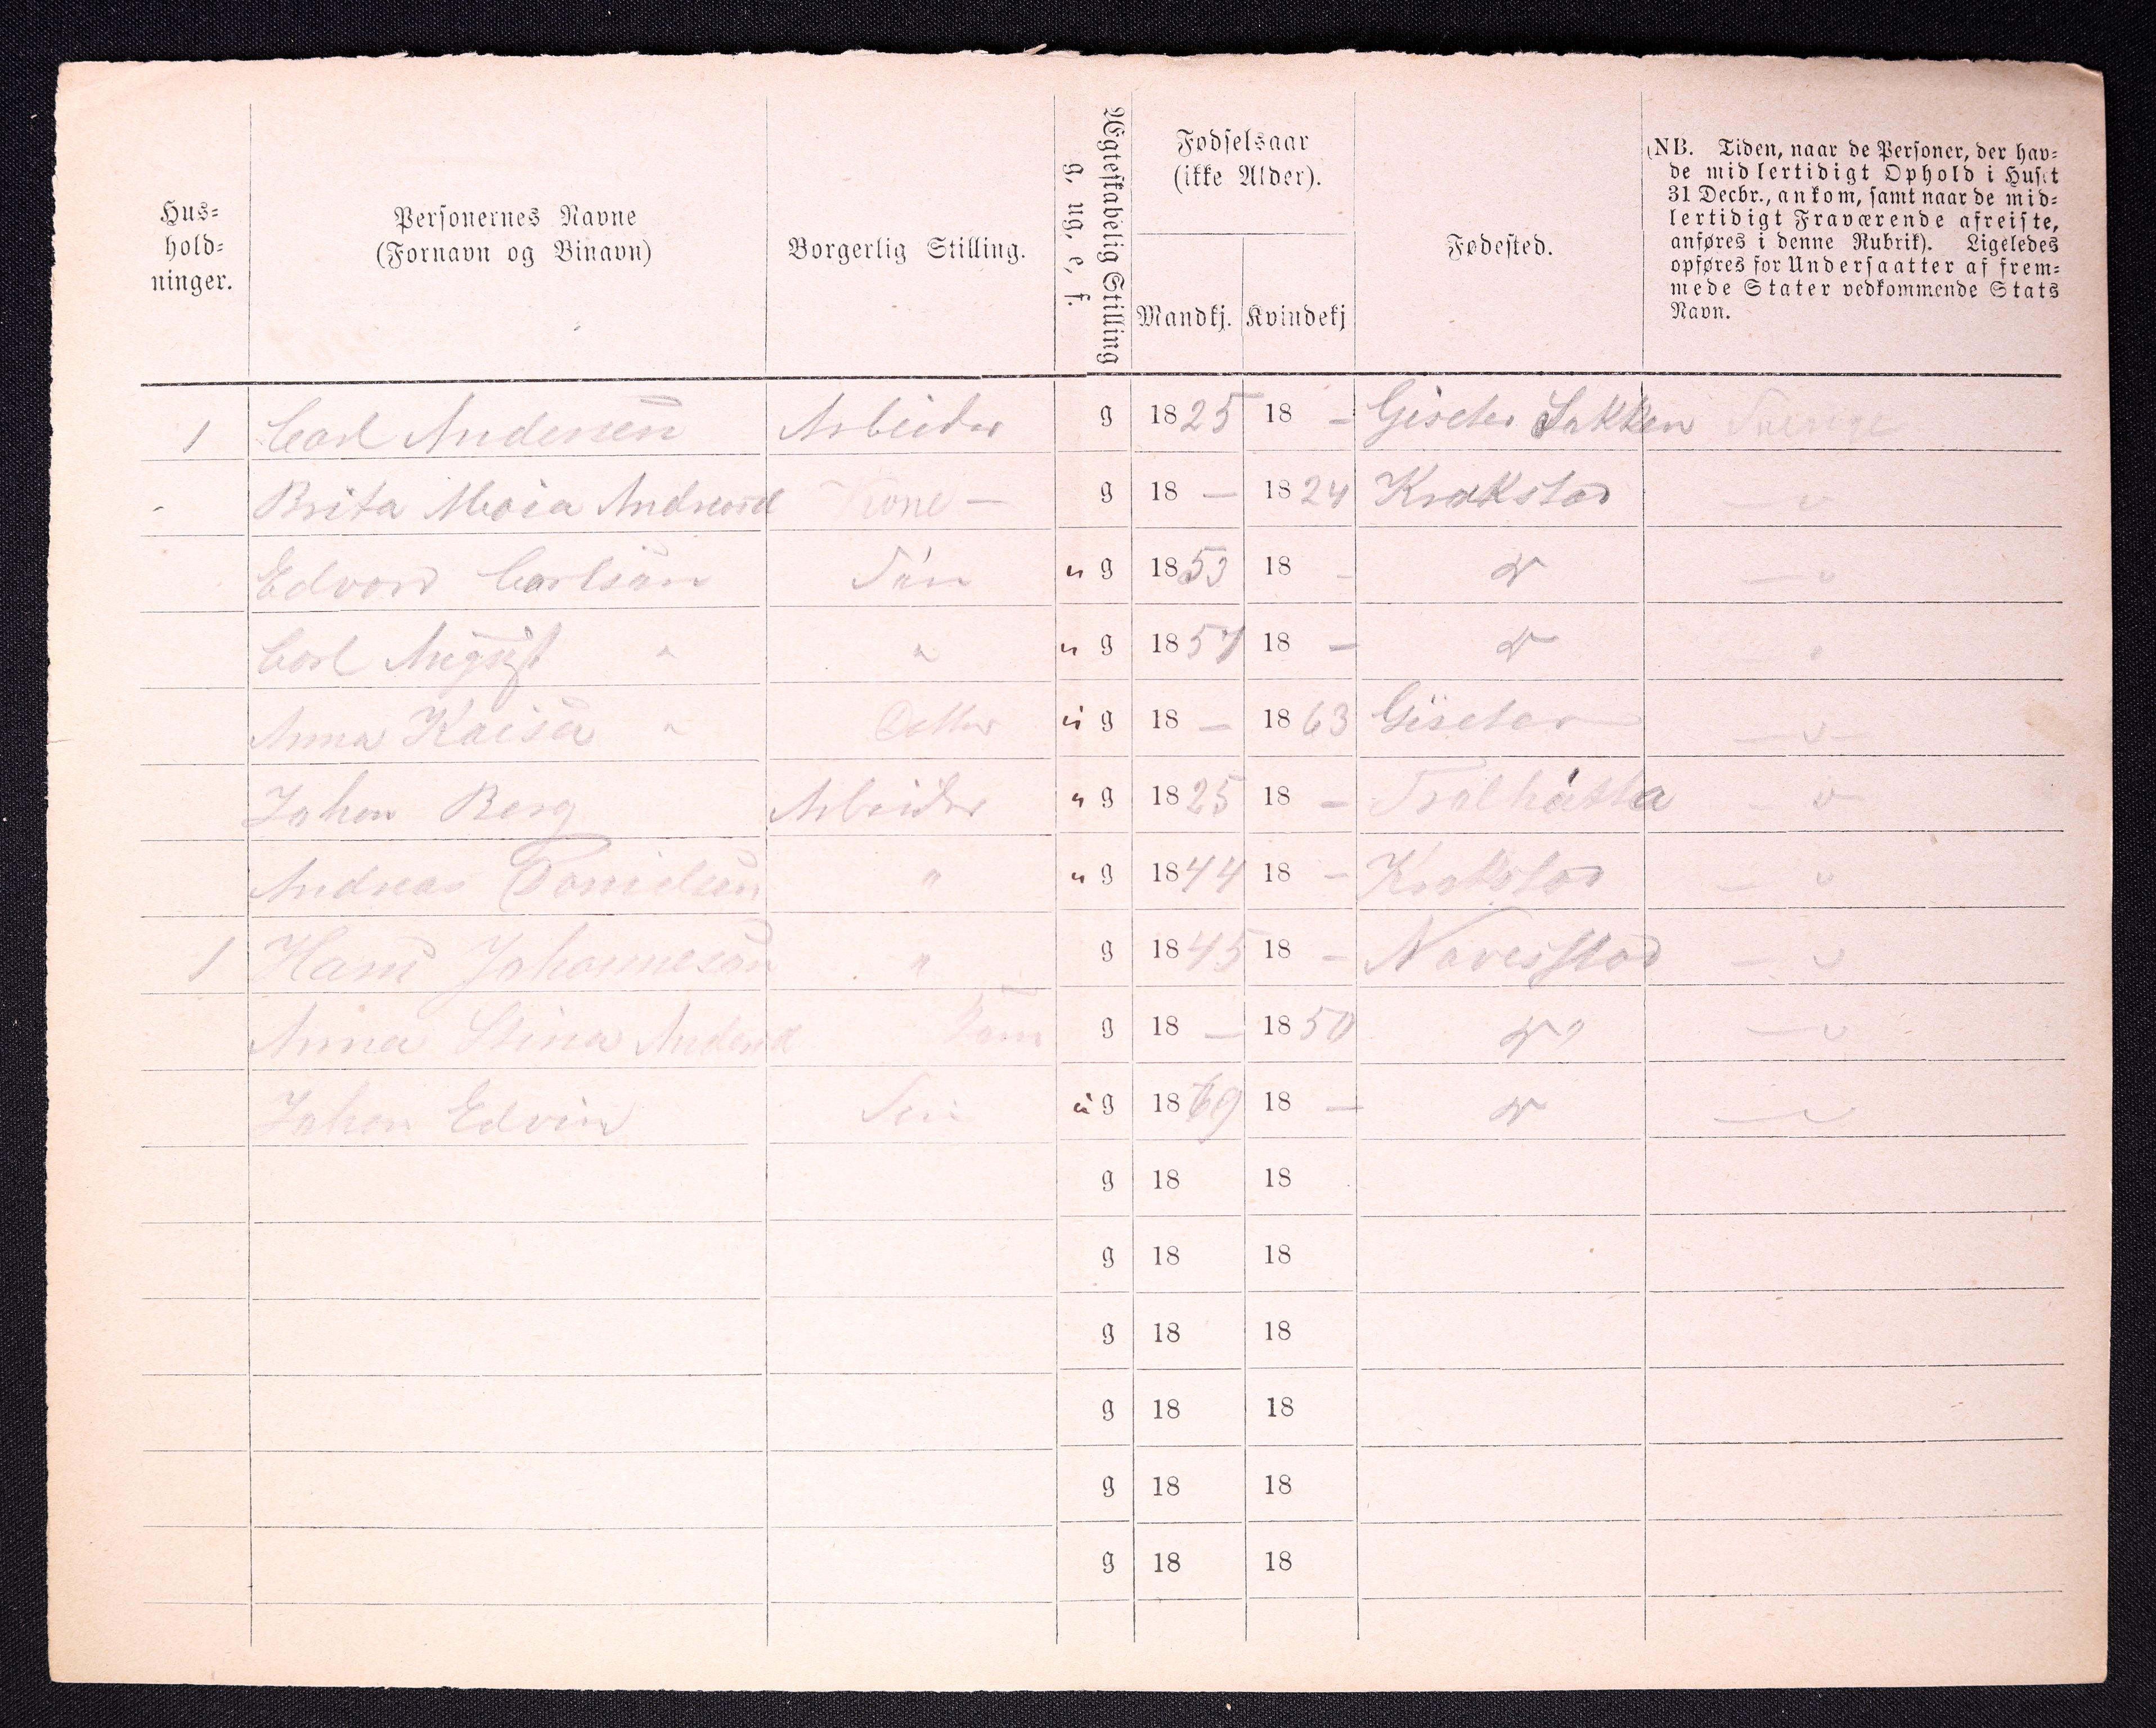 Hus=
hold=
ninger.
Personernes Navne
(Fornavn og Binavn)
Borgerlig Stilling.
Ægteskabelig Stilling
g, ug, e, f.
Fødselsaar
(ikke Alder).
Mandkj. Kvindekj
Fødested.
(NB. Tiden, naar de Personer, der hav=
de midlertidigt Ophold i Huset
31 Decbr., ankom, samt naar de mid=
lertidigt Fraværende afreiste,
anføres i denne Rubrik). Ligeledes
opføres for Undersaatter af frem=
mede Stater vedkommende Stats
Navn.
1 Carl Andersen Arbeider g 1825 18 - Sverige
- Brita Andreasd Kone - g 18 - 1824 Krokstad
Edvard Carlsån Sån u g 1853 18 -
Carl August " " u g 1857 18 -
Anna Kaisa " Datter u g 18 - 1863
Johan Berg Arbeider u g 1825 18 - Trolhätta
Andreas Danielsen " u g 1844 18 - Krokstad
1 Hans Johannesån " g 1845 18 - Navesstad
Anna Stina Andersd g 18 - 1850
Johan Edvin u g 1869 18 -
g 18 18
g 18 18
g 18 18
g 18 18
g 18 18
g 18 18